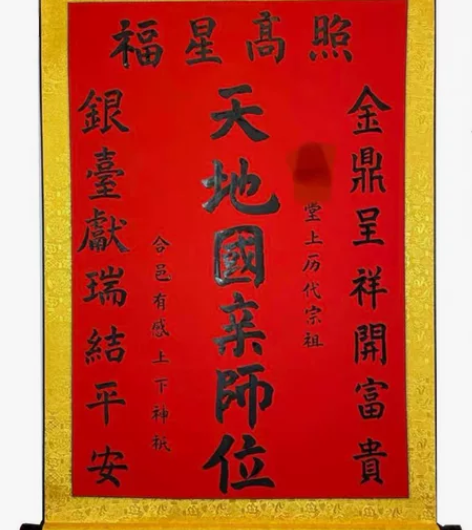 福星高照
金鼎呈祥開富貴
堂上历代宗祖
天地國亲師位
合邑有感上下神祇
銀臺獻瑞結平安